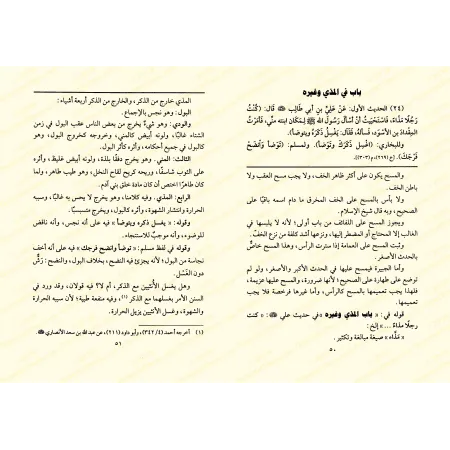 باب في المذي وغيره
(٢٤) الحديث الأول: عَنْ عَلِيِّ بن أبي طَالِبٍ ﷺ قَالَ: (كُنْتُ
رَجُلًا مَذَّاءً، فَاسْتَحْيَيْتُ أَنْ أَسْأَلَ رَسُولَ اللهِ ﷺ لِمَكَانِ ابنته مِنِّي، فَأَمَرْتُ
المِقْدَادَ بن الأَسْوَدِ، فَسَأَلَهُ، فَقَالَ: يَغْسِلُ ذَكَرَهُ وَيَتَوَضَّأ).
وللبخاري: (اغْسِل ذَكَرَكَ وَتَوَضَّأ). ولمسلم: (تَوَضَّأ وَانْضَحْ
فَرْجَكَ). [خ (٢٦٩)، م (٣٠٣)].
والمسح يكون على أكثر ظاهر الخف، ولا يجب مسح العقب ولا
باطن الخف.
ولا بأس بالمسح على الخف المخرق ما دام اسمه باقيًا على
الصحيح، وبه قال شيخ الإسلام.
ويجوز المسح على اللفائف من باب أولى؛ لأنه لا يلبسها في
الغالب إلا المحتاج أو المضطر إليها، ونزعها أشد كلفة من نزع الخف.
وثبت المسح على العمامة إذا سترت الرأس، وهذا المسح خاصٌّ
بالحدث الأصغر.
وأما الجبيرة فيمسح عليها في الحدث الأكبر والأصغر، ولو لم
توضع على طهارة على الصحيح؛ لأنها ضرورة، والمسح عليها عزيمة،
فلهذا يجب تعميمها بالمسح كالرأس، وأما غيرها فرخصة فلا يجب
تعميمها.
قوله في: « باب المذي وغيره » في حديث علي ﷺ: « كنت
رجلًا مذاءً ... » إلخ:
« مَذَّاء » صيغة مبالغة وتكثير.
٥٠
المذي خارج من الذكر، والخارج من الذكر أربعة أشياء:
البول: وهو نجس بالإجماع.
والودي: وهو شيءٌ يخرج من بعض الناس عقب البول في زمن
الشتاء غالبًا، ولونه أبيض كالمني، وخروجه كخروج البول، وهو
كالبول في جميع أحكامه، وأثره كأثر البول.
الثالث: المني. وهو يخرج دفقًا بلذة، ولونه أبيض غليظ، وأثره
على الثوب شاسفًا، وريحه كريح لقاح النخل، وهو طيب طاهر، ولما
كان طاهرًا اختص أن كان مادة خلق بني آدم.
الرابع: المذي. وفيه كلامنا، وهو يخرج لا يحس به غالبًا، وسببه
الحرارة وانتشار الشهوة، وأثره كالبول، ويخرج متسببًا.
وقوله: « يغسل ذكره ويتوضأ » فيه على أنه نجس، وأنه ناقض
للوضوء، وأنه موجبٌ للاستنجاء.
وقوله في لفظ مسلم: « توضأ وانضح فرجك » فيه على أنه أخف
نجاسة من البول؛ لأنه يجزئ فيه النضح، بخلاف البول؛ والنضح: رَشٌّ
دون الغَسْل.
وهل يغسل الأنثيين مع الذكر، أم لا؟ فيه قولان، وقد ورد في
السنن الأمر بغسلهما مع الذكر (١)، وفيه منفعة طبية؛ لأن سببه الحرارة
والشهوة، وغسل الأنثيين يزيل الحرارة.
(١) أخرجه أحمد (٣٤٢/٤)، وأبو داود (٢١١)، عن عبد الله بن سعد الأنصاري ﷺ
٥١